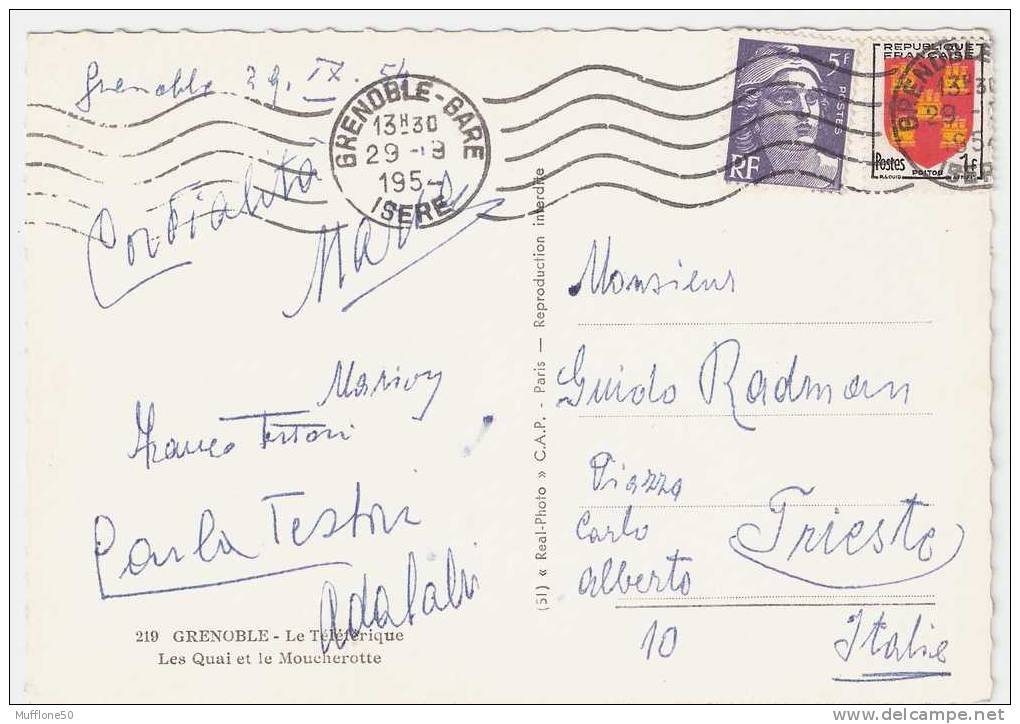 Grenoble 29.IX.54
GRENOBLE-GARE
13H30
29-9
195
ISERE
5F
POSTES
RF
REPUBLIQUE
FRANÇAISE
Postes
1F
POITOU
GRENOBLE
13H30
29
Cordialità
Monsieur
Guido Radman
Piazza
Carlo
Alberto
10
Trieste
Italie
Franco Testori
Paola Testori
219 GRENOBLE - Le Téléférique
Les Quai et le Moucherotte
(51) « Real-Photo » C.A.P. - Paris — Reproduction interdite
Mufflone50